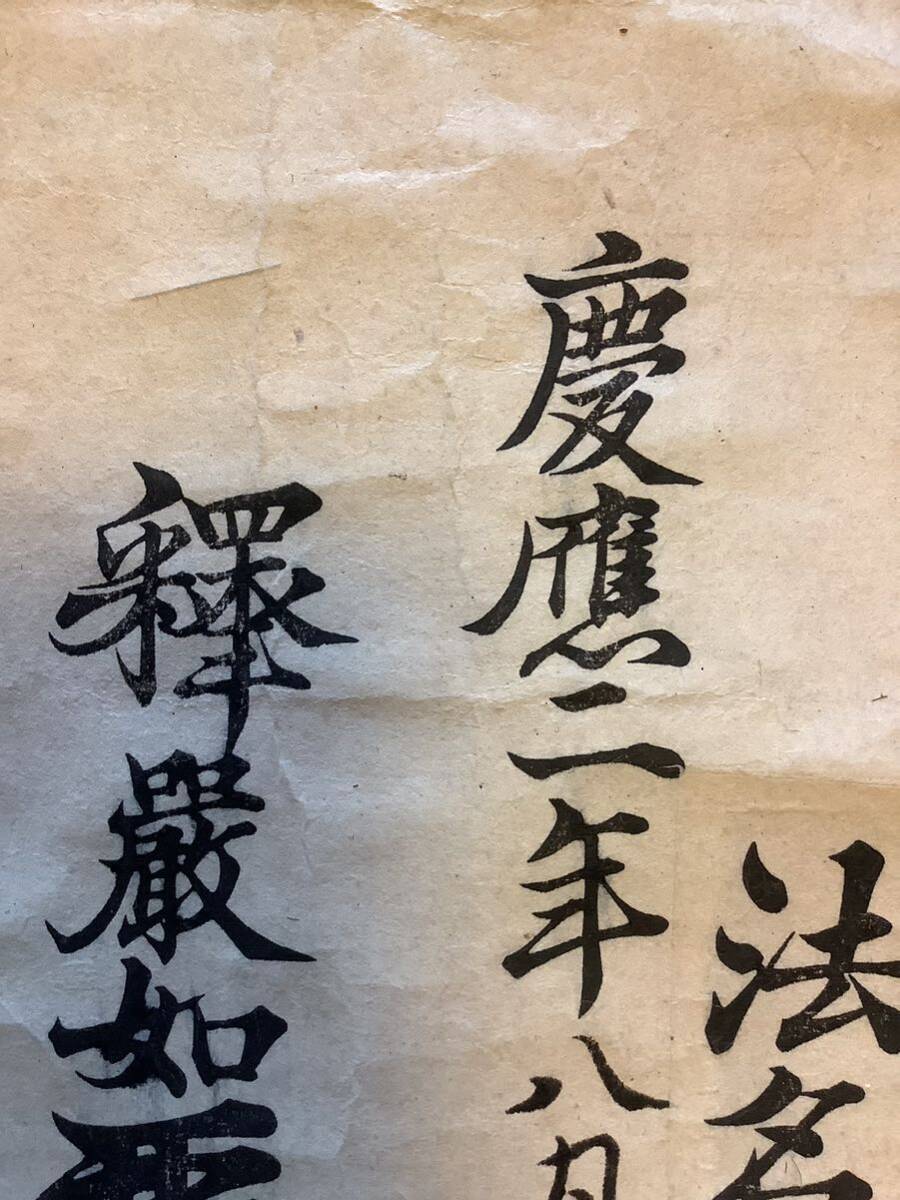 法名
慶應二年八月
釋嚴如